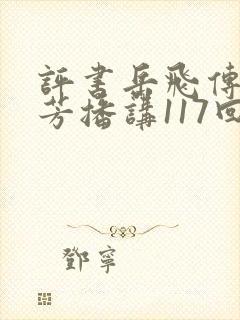 評書岳飛傳
芳播講117回
鄧寧